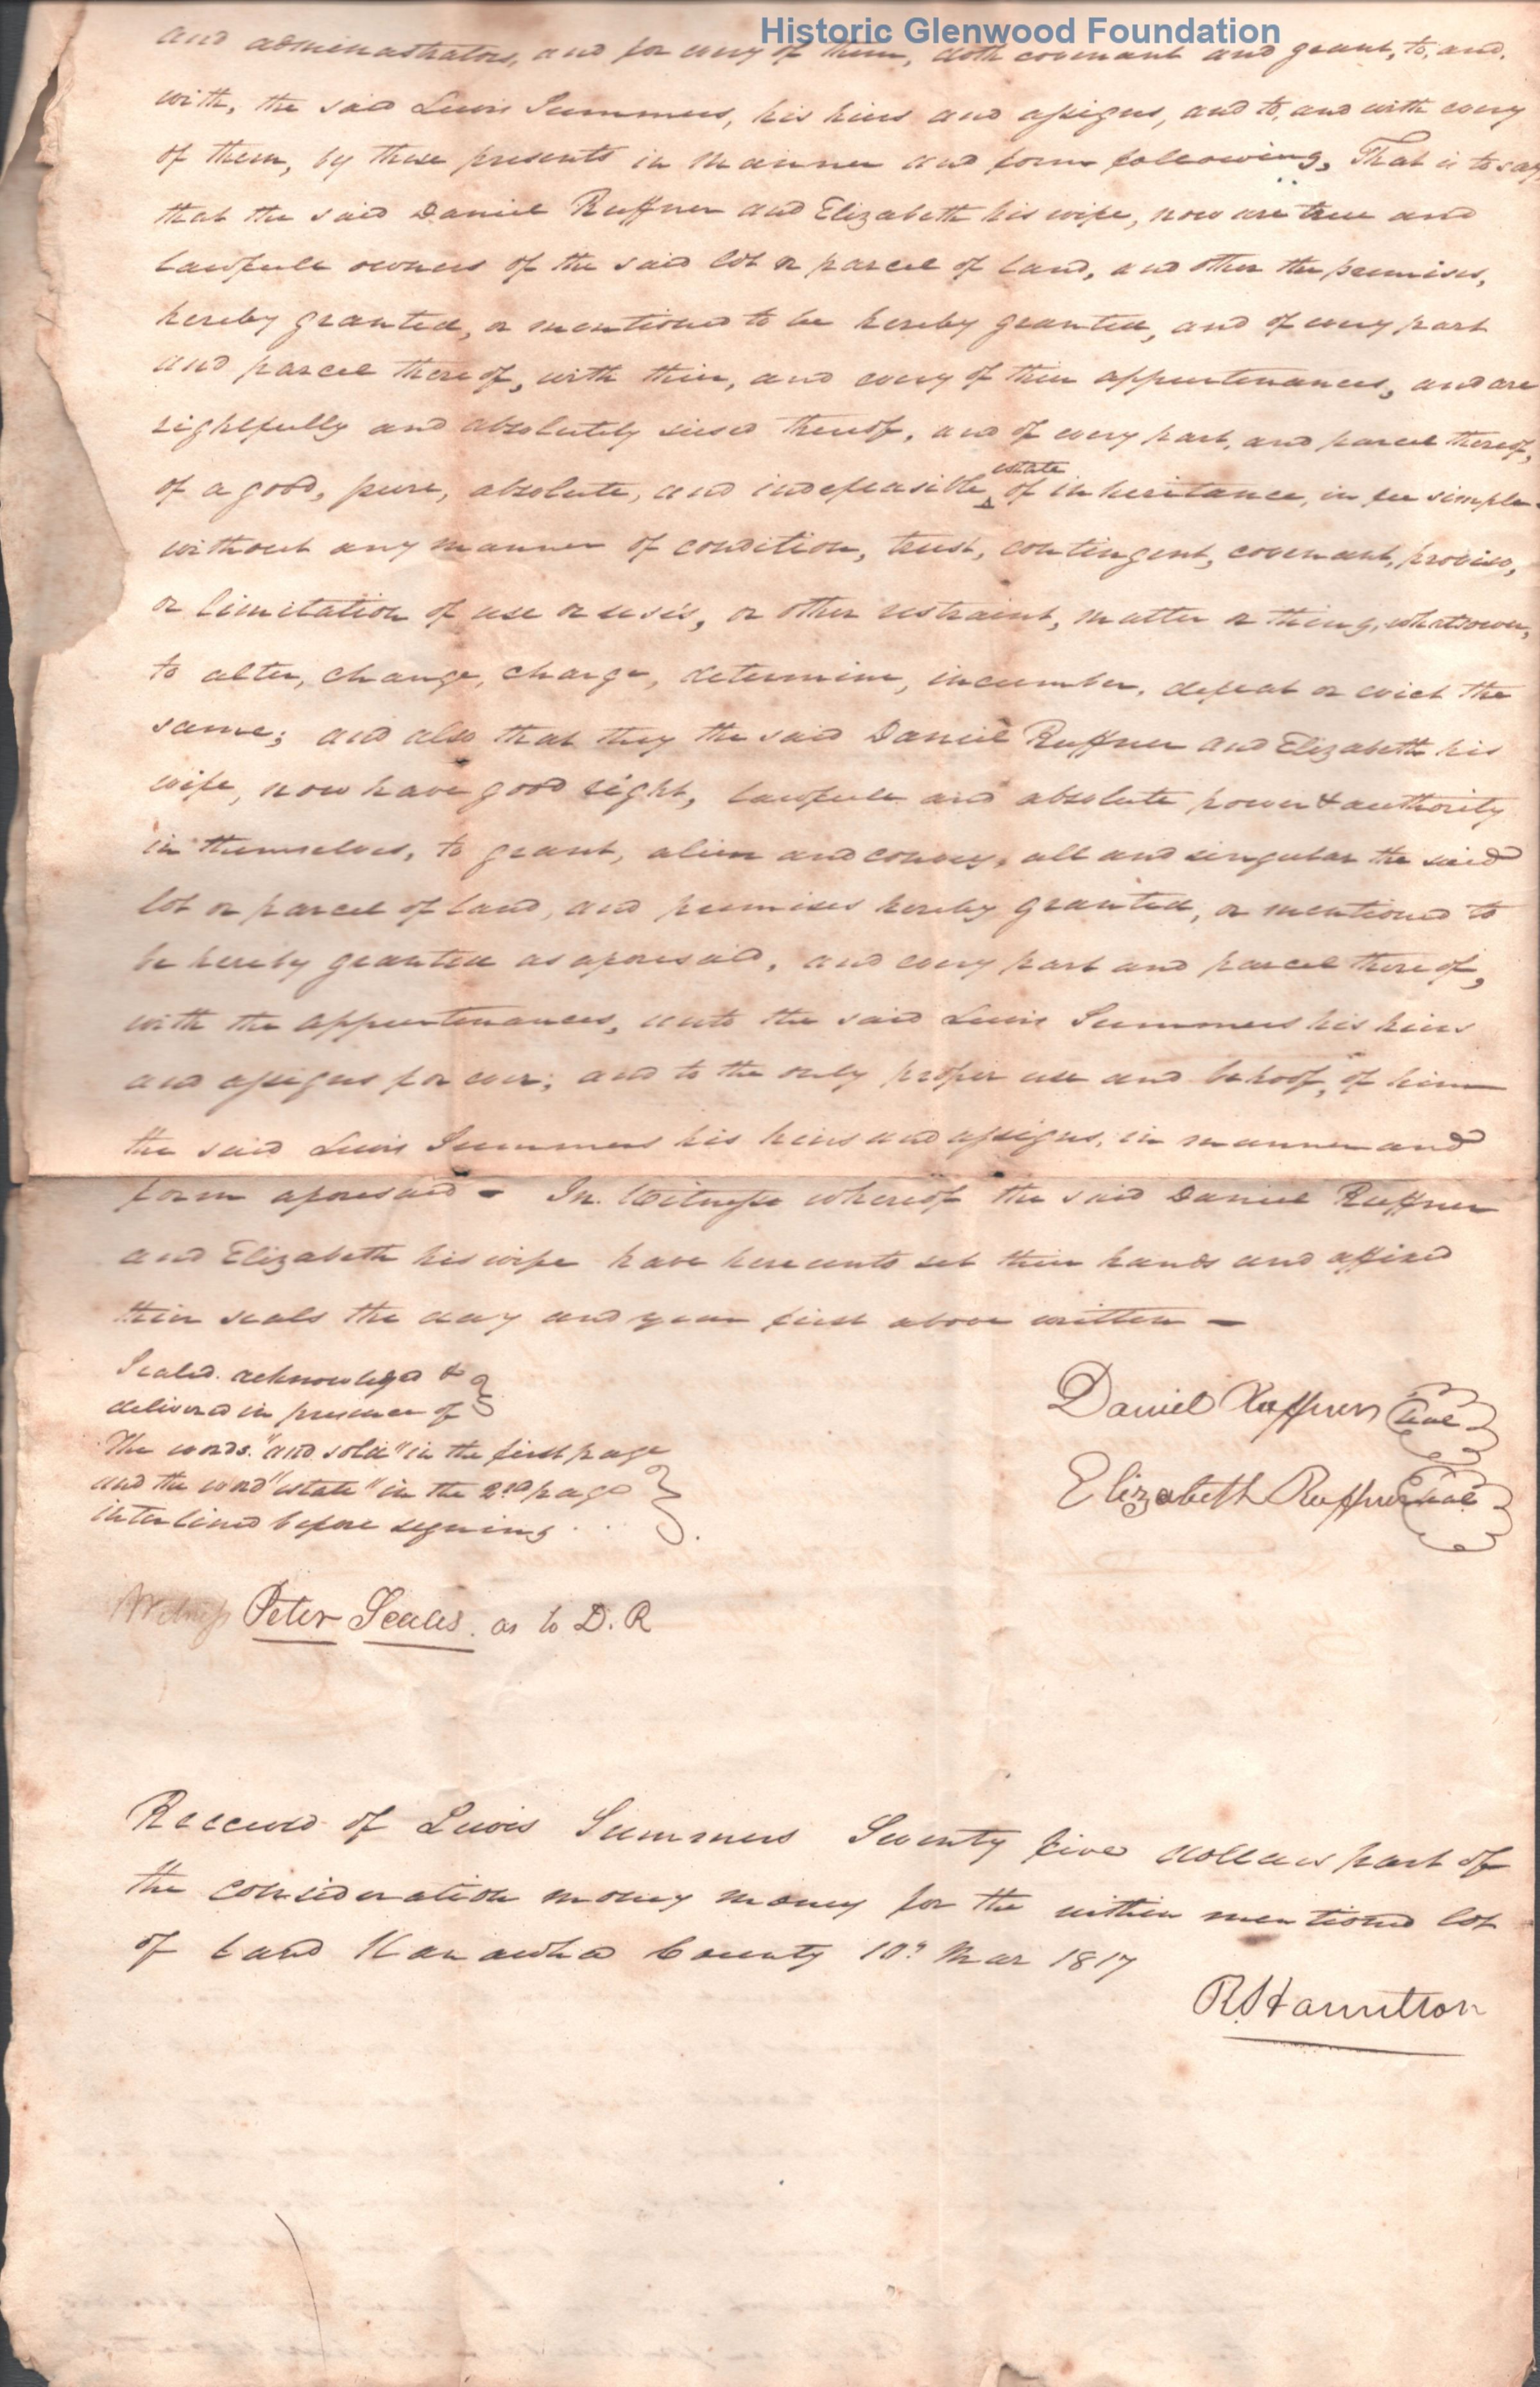 Historic Glenwood Foundation
and administrators, and for every of them, doth covenant and grant, to, and,
with, the said Lewis Summers, his hiers and assigns, and to, and with every
of them, by these presents in manner and form following, That is to say
that the said Daniel Ruffner and Elizabeth his wife, now are true and
lawfull owners of the said lot or parcel of land, and other the premises,
hereby granted, or mentioned to be hereby granted, and of every part
and parcel thereof, with their, and every of their appurtenances, and are
rightfully and absolutely siesed thereof, and of every part, and parcel thereof,
estate
of a good, pure, absolute, and indefeasible of inheritance, in fee simple
without any manner of condition, trust, contingent, covenant, proviso,
or limitation of use or uses, or other restraint, matter or thing, whatsoever,
to alter, change, charge, determine, incumber, defeat or evict the
same; and also that they the said Daniel Ruffner and Elizabeth his
wife, now have good right, lawfull and absolute power & authority
in themselves, to grant, alien and convey, all and singular the said
lot or parcel of land, and premises hereby granted, or mentioned to
be hereby granted as aforesaid, and every part and parcel thereof,
with the appurtenances, unto the said Lewis Summers his hiers
and assigns for ever; and to the only proper use and behoof, of him
the said Lewis Summers his hiers and assigns, in manner and
form aforesaid - In. Witness whereof the said Daniel Ruffner
and Elizabeth his wife have hereunto set their hands and affixed
their seals the day and year first above written -
Sealed. acknowledged &
delivered in presence of
The words. "and sold" in the first page
and the word "estate" in the 2nd page
interlined before signing . . .
Daniel Ruffner Seal
Elizabeth Ruffner Seal
Witness Peter Scales. as to D. R
Received of Lewis Summers Seventy five dollars part of
the consideration money money for the within mentioned lot
of Land Kanawha County 10th Mar 1817
R. Hamilton